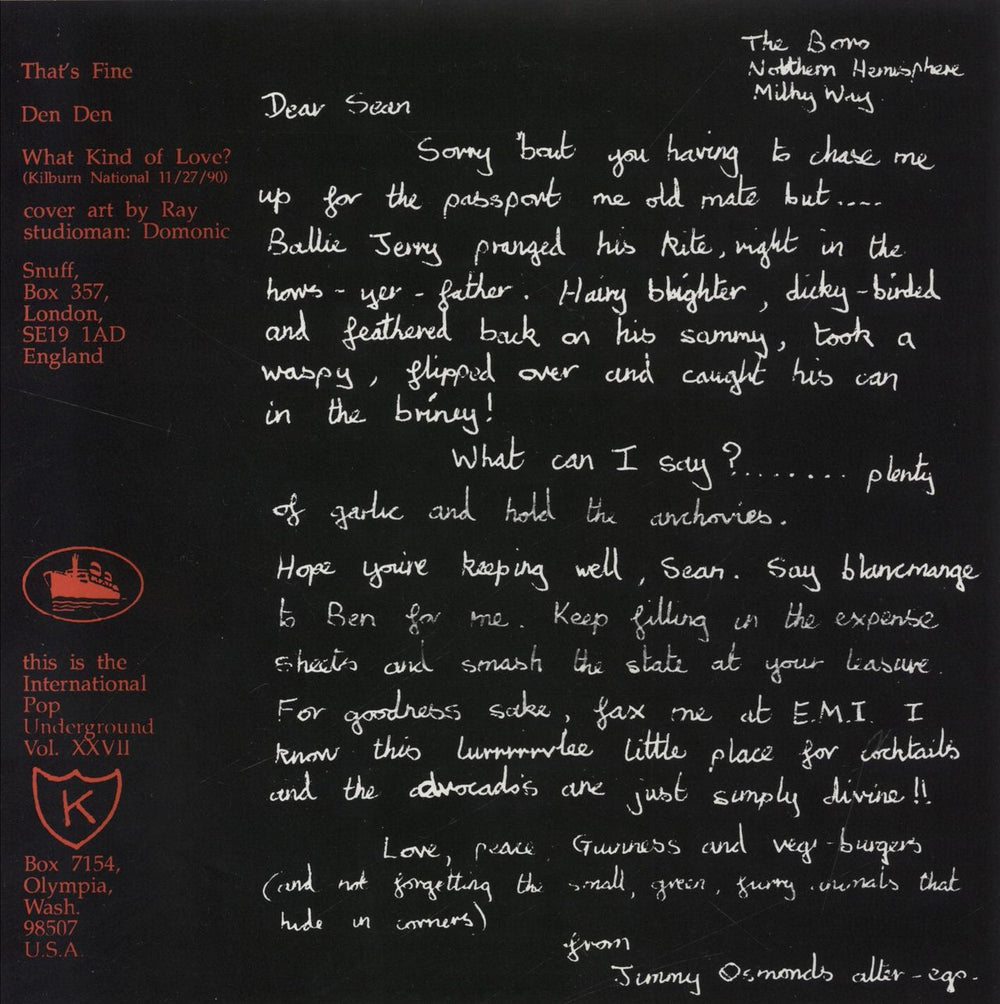 That's Fine
Den Den
What Kind of Love?
(Kilburn National 11/27/90)
cover art by Ray
studioman: Domonic
Snuff,
Box 357,
London,
SE19 1AD
England
this is the
International
Pop
Underground
Vol. XXVII
K
Box 7154,
Olympia,
Wash.
98507
U.S.A.
The
Northern Hemisphere
Milky Way
Dear Sean
Sorry 'bout you having to chase me
up for the passport me old mate but....
Ballie Jerry pranged his kite, right in the
hows-yer-father. Hairy blighter, dicky-birded
and feathered back on his sammy, took a
waspy, flipped over and caught his can
in the briney!
What can I say?........ plenty
of garlic and hold the anchovies.
Hope you're keeping well, Sean. Say blancmange
to Ben for me. Keep filling in the expense
sheets and smash the state at your leasure.
For goodness sake, fax me at E.M.I. I
know this little place for cocktails
and the advocado's are just simply divine!!
Love, peace, Guinness and vegi-burgers
(and not forgetting the small, green, furry animals that
hide in corners)
from
Jimmy Osmonds alter-ego.